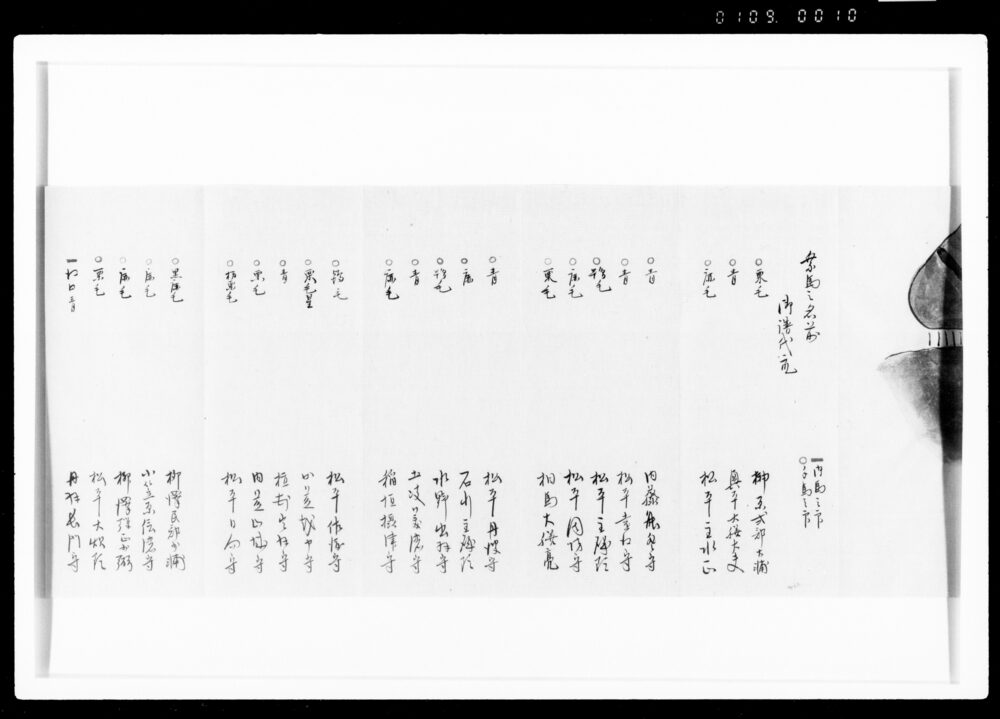 0109. 0010
乗馬之名前
御譜代衆
一 内馬之部
○ 手馬之部
○栗毛 榊原式部大輔
○青 奥平大膳大夫
○鹿毛 松平主水正
○青 内藤能登守
○青 松平 守
○鴾毛 松平主殿頭
○鹿毛 松平周防守
○栗毛 相馬大膳亮
○青 松平丹後守
○鹿 石川主殿頭
○鴾毛 水野出羽守
○青 土岐美濃守
○鹿毛 稲垣摂津守
○鴾毛 松平作 守
○栗毛星 小笠 守
○青 植村出羽守
○栗毛 内 守
○栃栗毛 松平日向守
○黒鹿毛 柳澤民部少輔
○鹿毛 小笠原信濃守
○鹿毛 柳澤弾正少弼
○栗毛 松平大炊頭
一 青 丹羽長門守